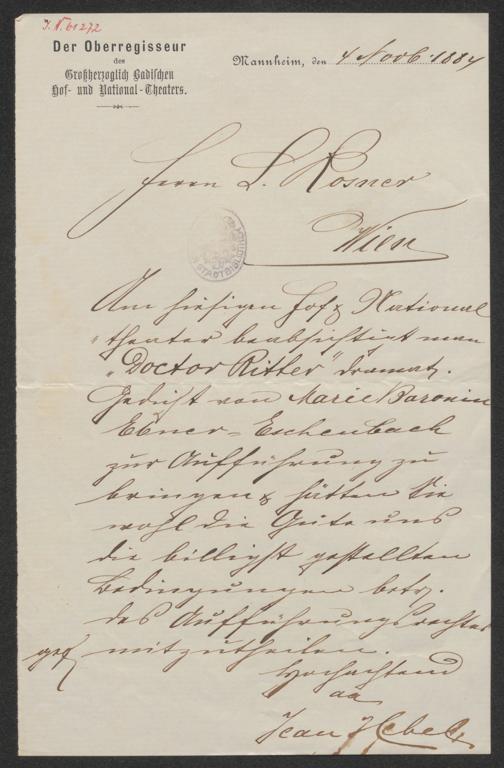 J. N. 61272
Der Oberregisseur
des
Großherzoglich Badischen
Hof- und National-Theaters.
Mannheim, den 4 Novb. 1884
Herrn L. Rosner
Wien
Am hiesigen Hof & National
theater beabsichtigt man
„Doctor Ritter" dramat.
Gedicht von Marie Baronin
Ebner-Eschenbach
zur Aufführung zu
bringen & hätten Sie
wohl die Güte uns
die billigst gestellten
Bedingungen betr.
des Aufführungsrechtes
gef. mitzutheilen.
Hochachtend
Jean